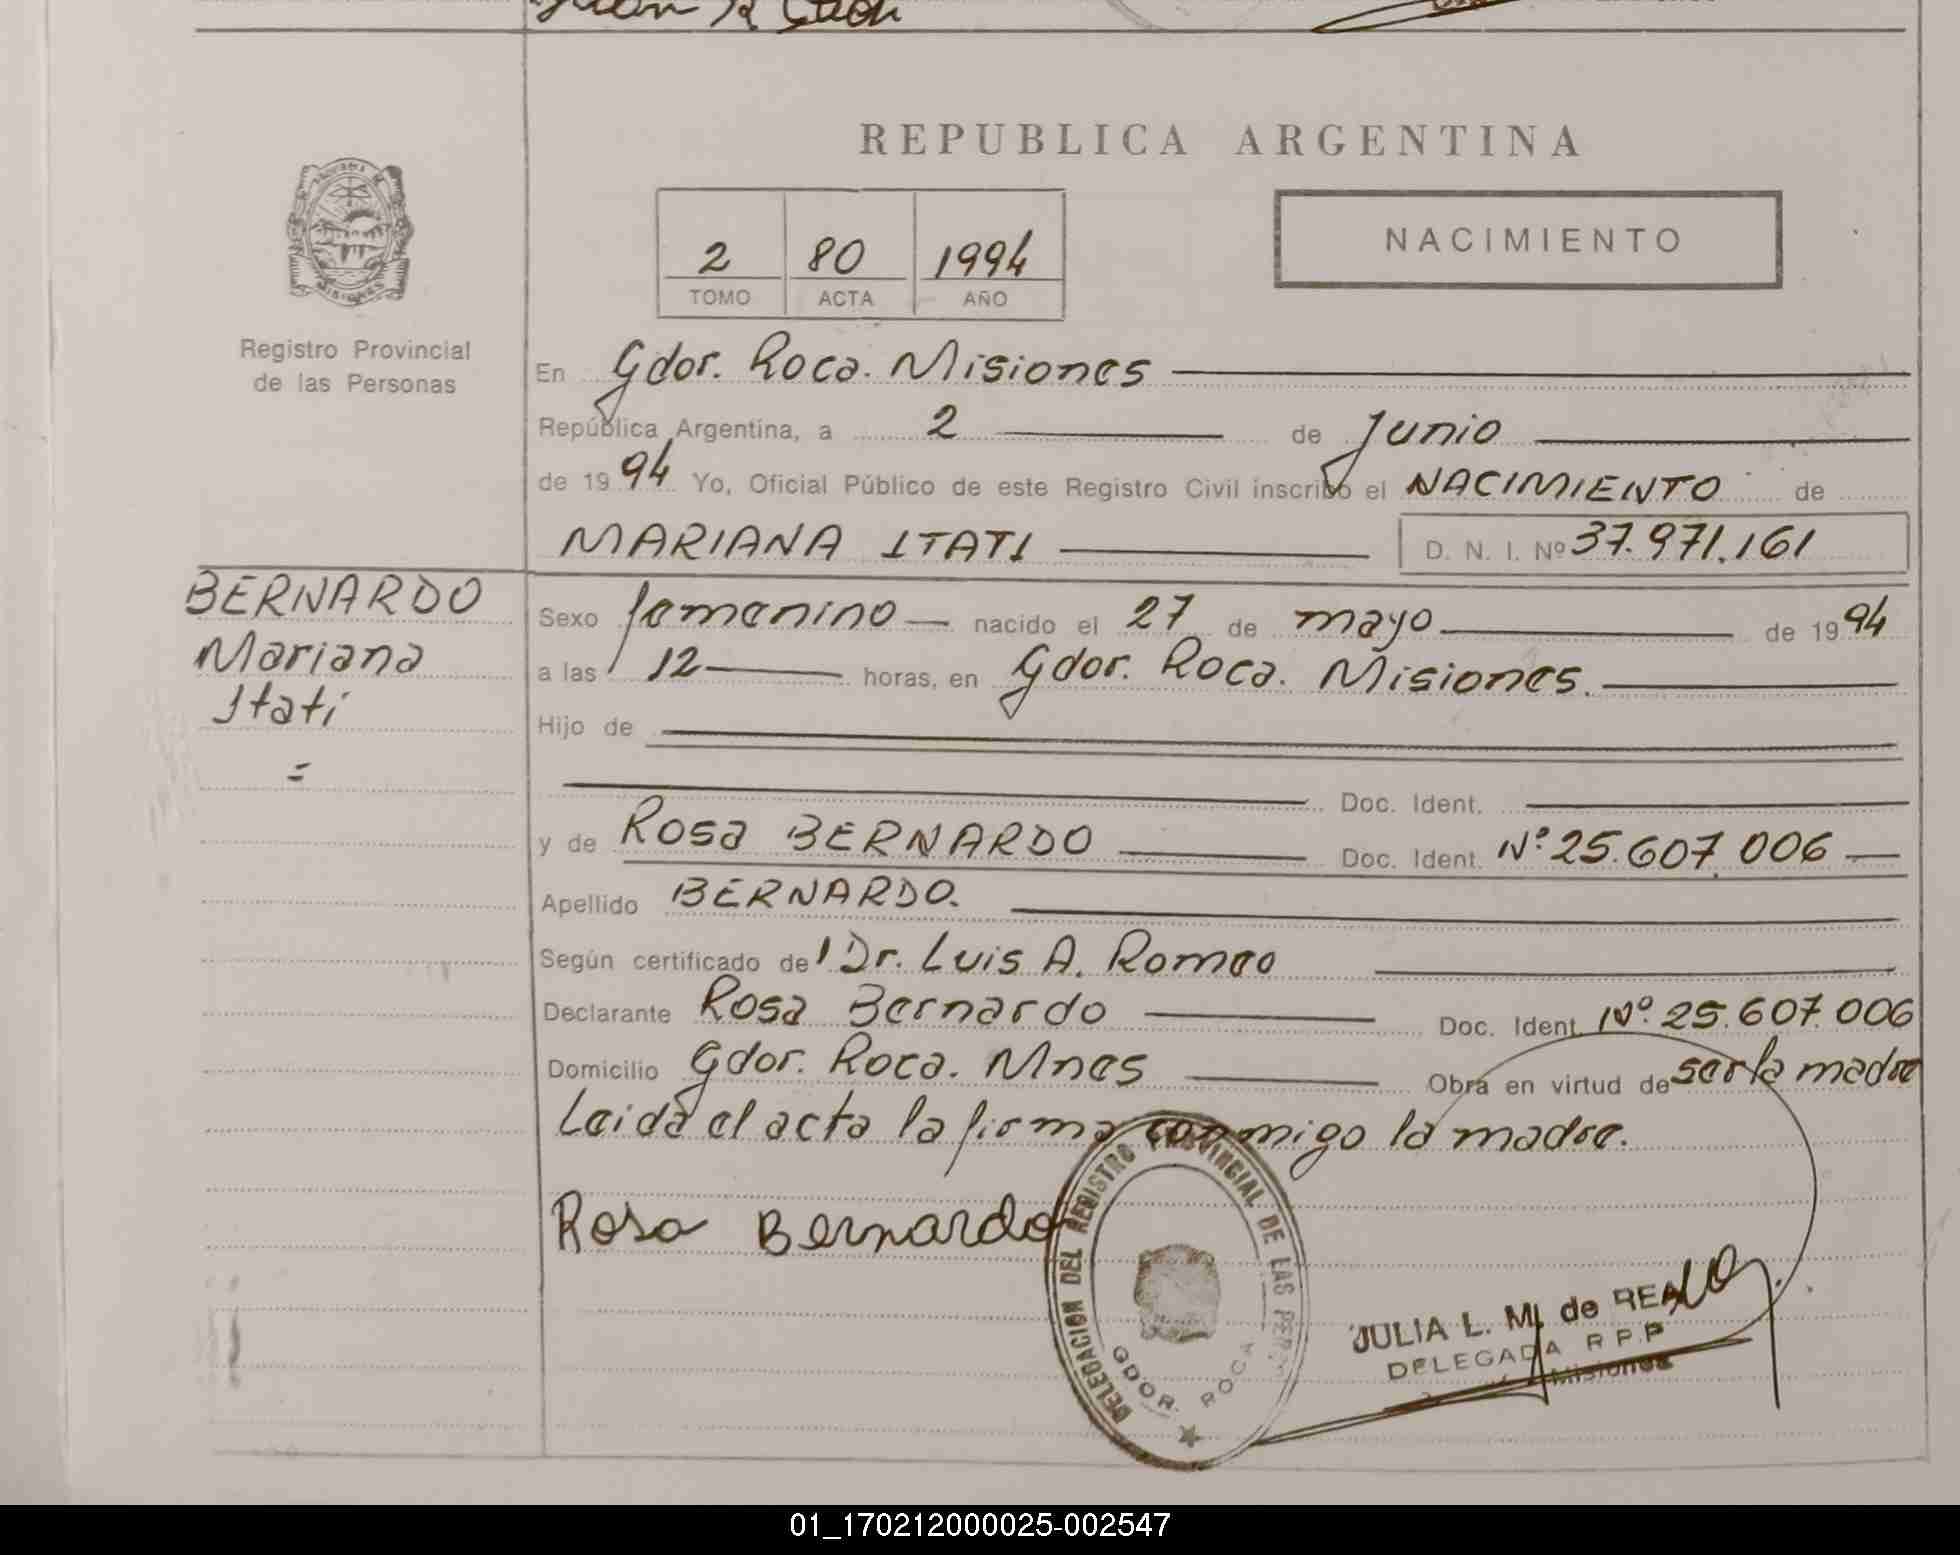 REPUBLICA ARGENTINA
NACIMIENTO
2 80 1994
TOMO ACTA AÑO
MISIONES
Registro Provincial
de las Personas
En Gdor. Roca. Misiones
República Argentina, a 2 de Junio
de 1994 Yo, Oficial Público de este Registro Civil inscribo el NACIMIENTO de
MARIANA ITATI D. N. I. Nº 37.971.161
BERNARDO
Mariana
Itatí
=
Sexo femenino nacido el 27 de mayo de 1994
a las 12 horas, en Gdor. Roca. Misiones.
Hijo de
Doc. Ident.
y de Rosa BERNARDO Doc. Ident. Nº 25.607.006
Apellido BERNARDO.
Según certificado del Dr. Luis A. Romeo
Declarante Rosa Bernardo Doc. Ident. Nº 25.607.006
Domicilio Gdor. Roca. Mnes Obra en virtud de ser la madre
Leida el acta la firma conmigo la madre.
Rosa Bernardo
DELEGACION DEL REGISTRO PROVINCIAL DE LAS
GDOR. ROCA
JULIA L. M. de
DELEGADA R P P
Misiones
01_170212000025-002547